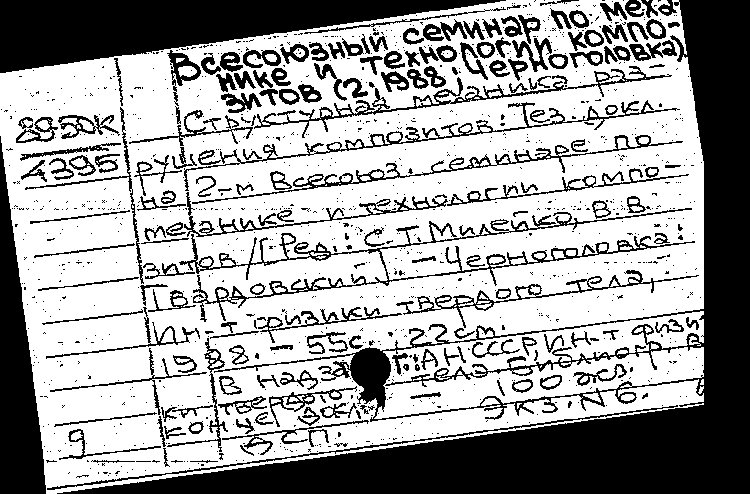 Всесоюзный семинар по меха-
нике и технологии компо-
зитов (2; 1988; Черноголовка)
Структурная механика раз-
рушения композитов: Тез. докл.
на 2-м Всесоюз. семинаре по
механике и технологии компо-
зитов / [Ред.: С.Т. Милейко, В.В.
Твардовский]. – Черноголовка:
Ин-т физики твердого тела,
1988. – 55с.; 22см.
В надзаг.: АН СССР, Ин-т физи-
ки твердого тела. Библиогр. в
конце докл. – 100 экз.
ДСП. Экз. N 6.
4395
9